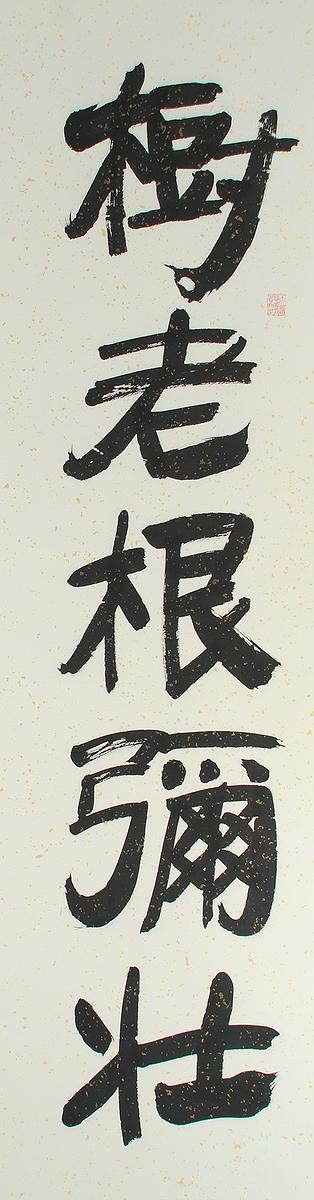 樹老根彌壯